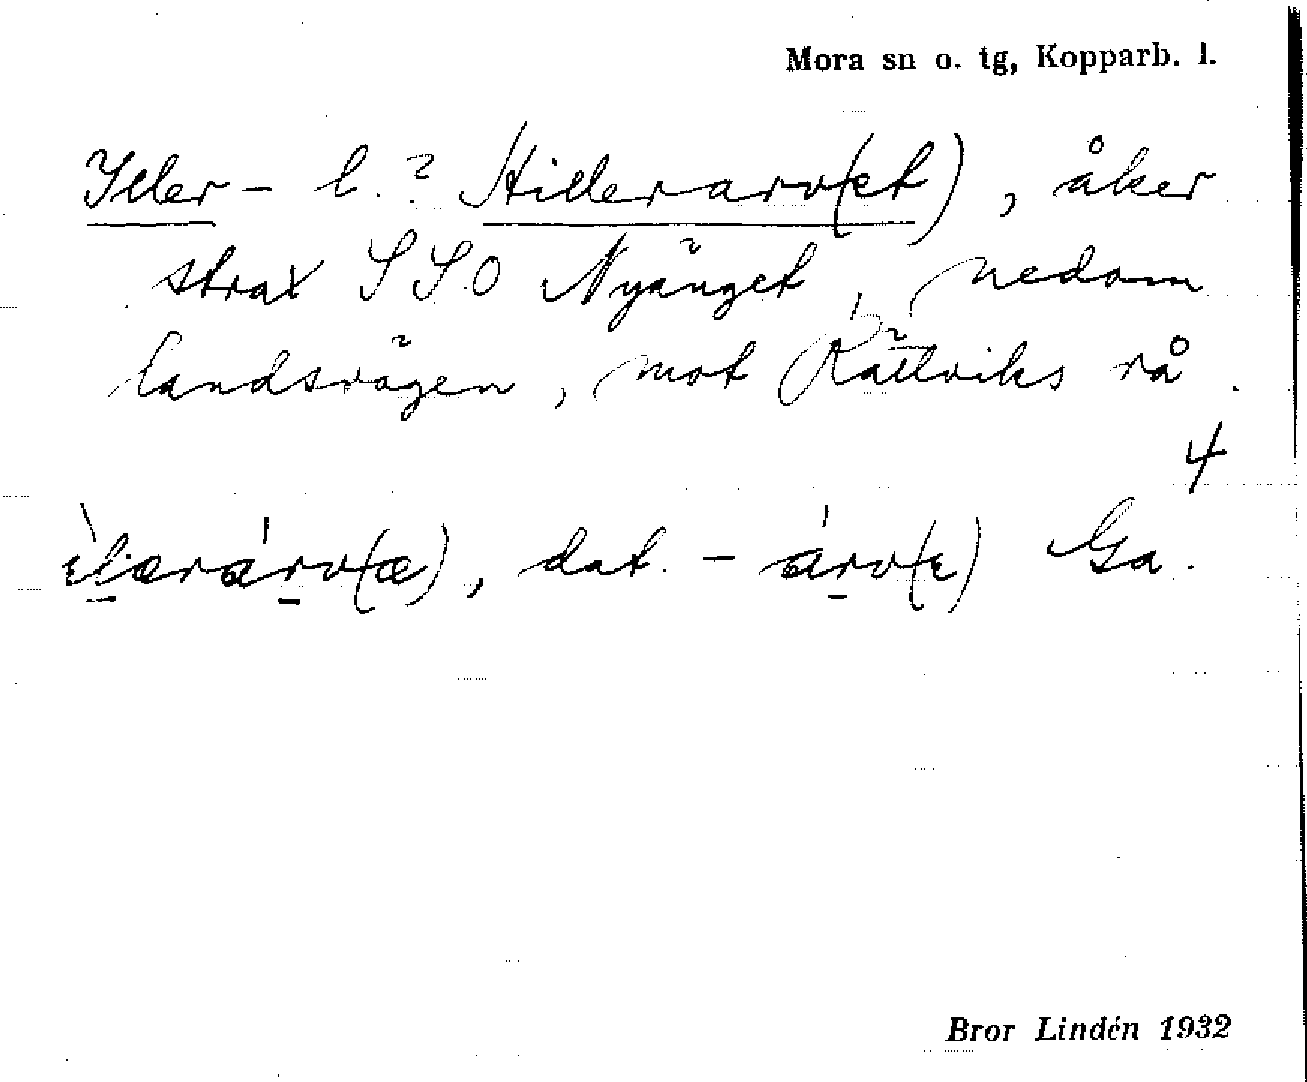 Mora sn o. tg, Kopparb. l.
Iller- l.? Hillerarv(et), åker
strax SSO Nyänget, nedom
landsvägen, mot Rättviks rå.
4
ìlærárv(æ), dat. -árv(ɛ) Ga.
Bror Lindén 1932